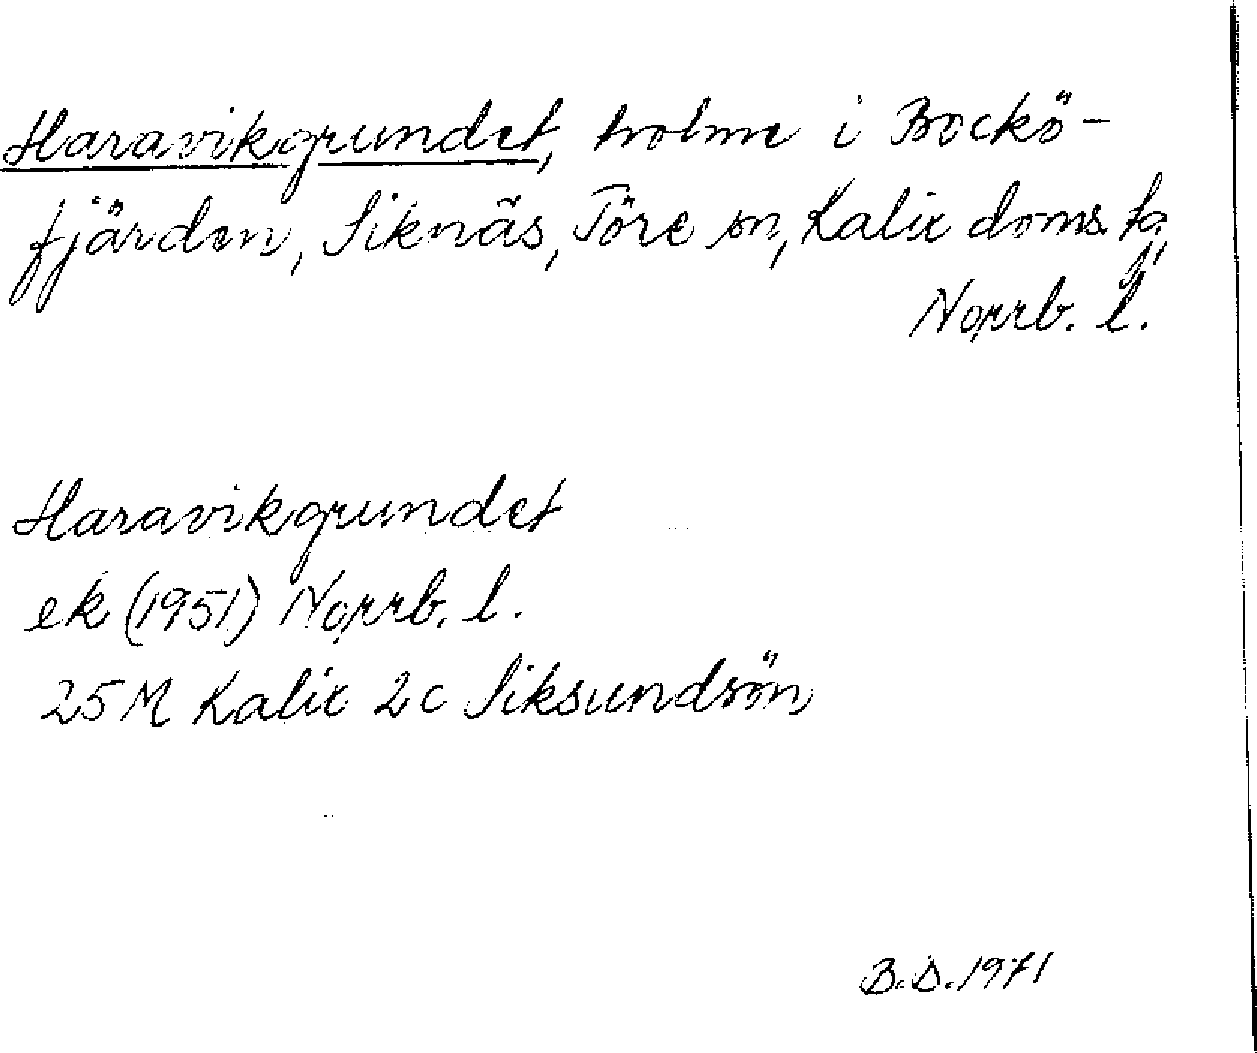 Haravikgrundet, holme i Bockö-
fjärden, Siknäs, Töre sn, Kalix doms. h.,
Norrb. l.
Haravikgrundet
ek (1951) Norrb. l.
25 M Kalix 2 c Siksundsön
B.D. 1971